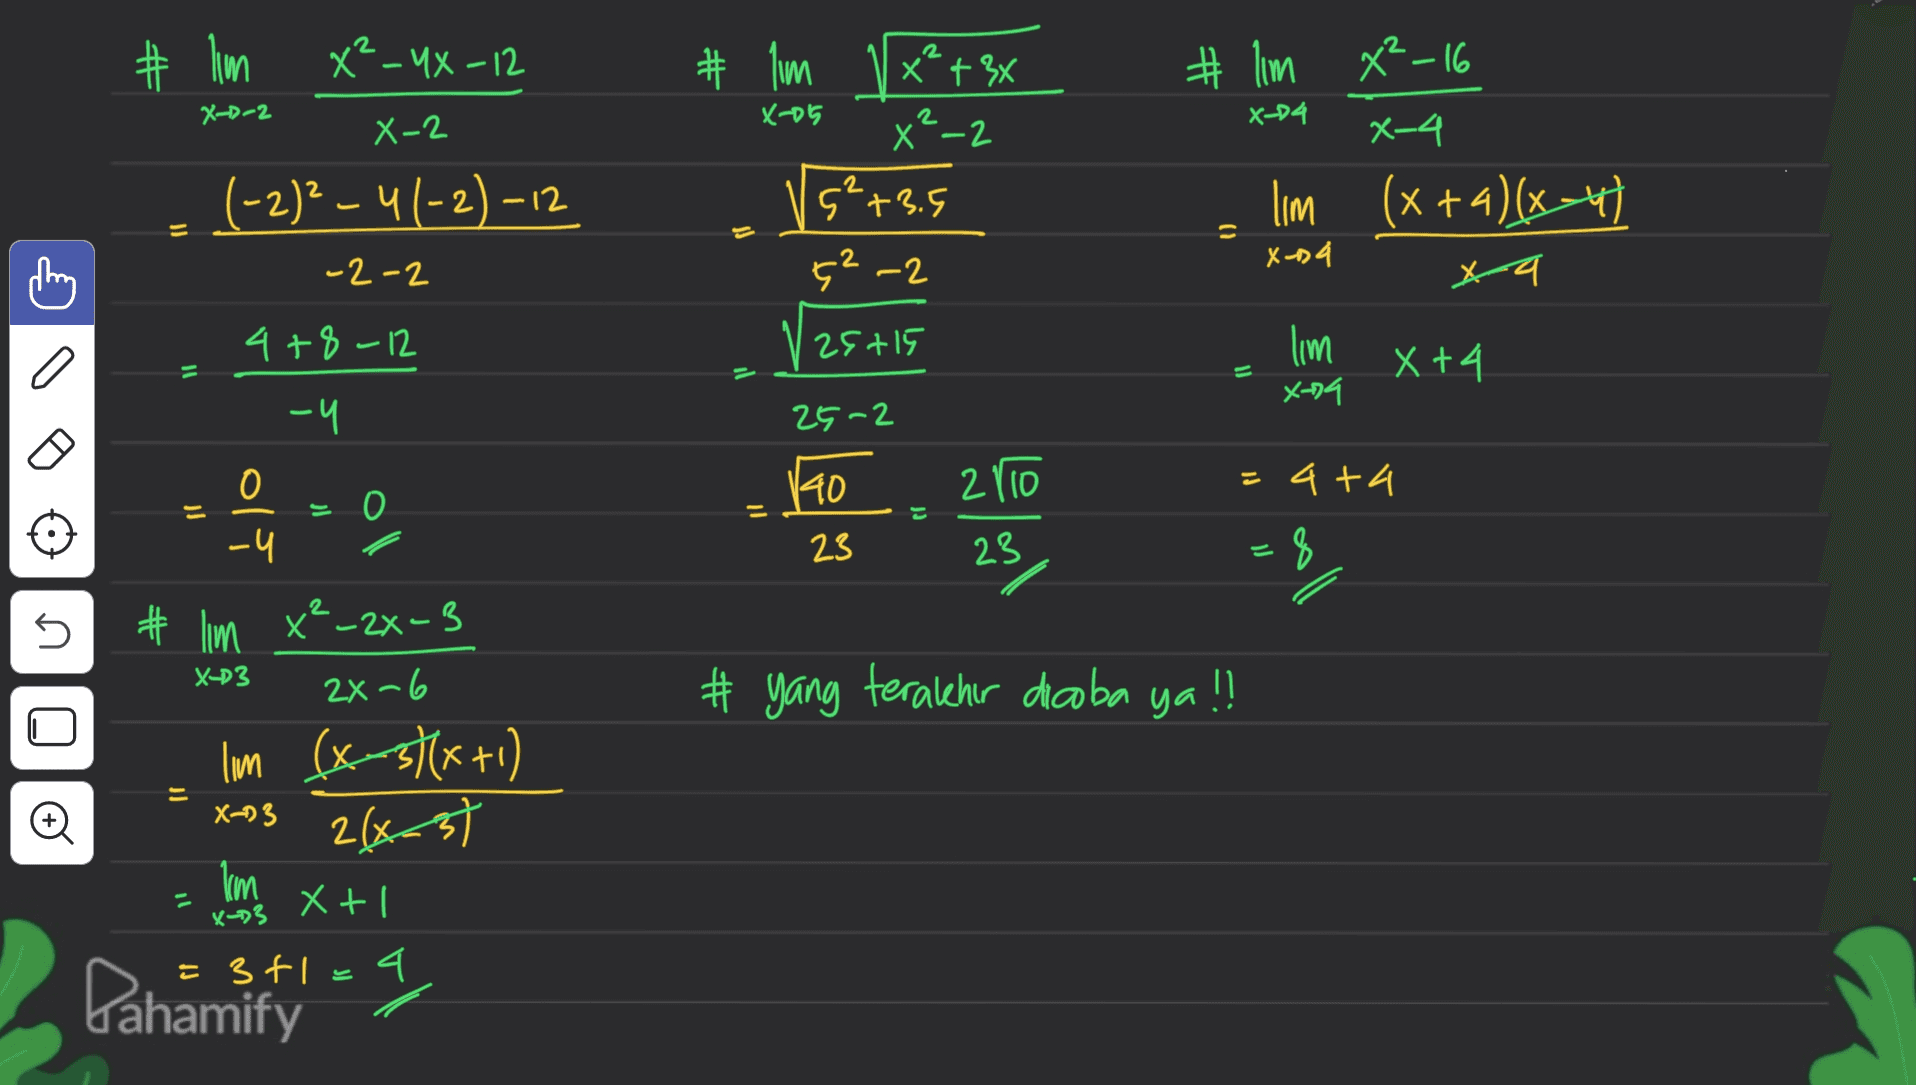 # lim x→-2 (x² - 4x - 12)/(x - 2)
= ((-2)² - 4(-2) - 12)/(-2 - 2)
= (4 + 8 - 12)/(-4)
= 0/(-4) = 0
# lim x→5 √(x² + 3x)/(x² - 2)
= √(5² + 3.5)/(5² - 2)
= √(25 + 15)/(25 - 2)
= √40/23 = 2√10/23
# lim x→4 (x² - 16)/(x - 4)
= lim x→4 (x + 4)(x - 4)/(x - 4)
= lim x→4 x + 4
= 4 + 4
= 8
# lim x→3 (x² - 2x - 3)/(2x - 6)
= lim x→3 (x - 3)(x + 1)/(2(x - 3))
= lim x→3 x + 1
= 3 + 1 = 4
# yang terakhir dicoba ya !!
Pahamify